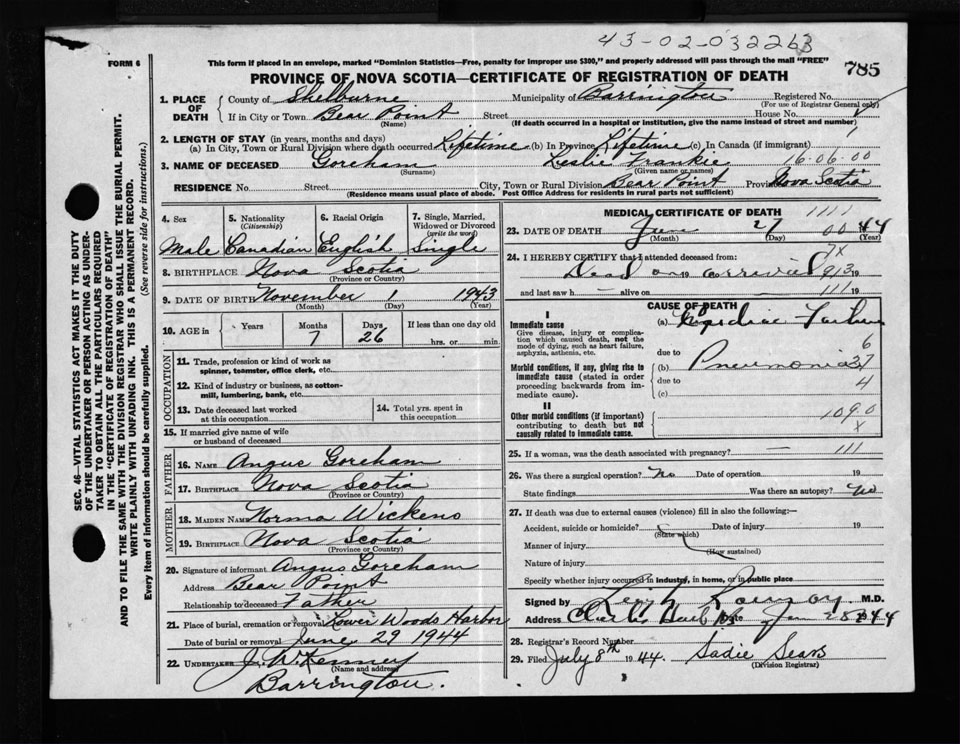 43-02-032263
FORM 6
This form if placed in an envelope, marked "Dominion Statistics—Free, penalty for improper use $300," and properly addressed will pass through the mail "FREE"
PROVINCE OF NOVA SCOTIA—CERTIFICATE OF REGISTRATION OF DEATH
785
1. PLACE OF DEATH
County of Shelburne Municipality of Barrington Registered No.
(For use of Registrar General only)
If in City or Town Bear Point Street House No.
(Name) (If death occurred in a hospital or institution, give the name instead of street and number)
2. LENGTH OF STAY (in years, months and days)
(a) In City, Town or Rural Division where death occurred Lifetime (b) In Province Lifetime (c) In Canada (if immigrant)
3. NAME OF DECEASED Goreham Leslie Frankie 16.06.00
(Surname) (Given name or names)
RESIDENCE No. Street City, Town or Rural Division Bear Point Province Nova Scotia
(Residence means usual place of abode. Post Office Address for residents in rural parts not sufficient)
4. Sex
Male
5. Nationality
(Citizenship)
Canadian
6. Racial Origin
English
7. Single, Married, Widowed or Divorced
(write the word)
Single
8. BIRTHPLACE Nova Scotia
(Province or Country)
9. DATE OF BIRTH November 1 1943
(Month) (Day) (Year)
10. AGE in
Years Months Days If less than one day old
7 26 hrs. or min.
OCCUPATION
11. Trade, profession or kind of work as
spinner, teamster, office clerk, etc.
12. Kind of industry or business, as cotton-
mill, lumbering, bank, etc.
13. Date deceased last worked
at this occupation
14. Total yrs. spent in
this occupation
15. If married give name of wife
or husband of deceased
FATHER
16. NAME Angus Goreham
17. BIRTHPLACE Nova Scotia
(Province or Country)
MOTHER
18. MAIDEN NAME Norma Wickens
19. BIRTHPLACE Nova Scotia
(Province or Country)
20. Signature of informant Angus Goreham
Address Bear Point
Relationship to deceased Father
21. Place of burial, cremation or removal Lower Woods Harbor
Date of burial or removal June 29 1944
22. UNDERTAKER J. W. Kenney
(Name and address)
Barrington.
MEDICAL CERTIFICATE OF DEATH 1111
23. DATE OF DEATH Jun 27 00 44
(Month) (Day) (Year)
24. I HEREBY CERTIFY that I attended deceased from: 7x
Dead on arrival 913 19
and last saw h alive on 111 19
CAUSE OF DEATH
I
Immediate cause
Give disease, injury or complica-
tion which caused death, not the
mode of dying, such as heart failure,
asphyxia, asthenia, etc.
(a) Failure
due to 6
Morbid conditions, if any, giving rise to
immediate cause (stated in order
proceeding backwards from im-
mediate cause).
(b) Pneumonia
due to 4
(c)
II
Other morbid conditions (if important)
contributing to death but not
causally related to immediate cause.
109.0
x
25. If a woman, was the death associated with pregnancy? — 111
26. Was there a surgical operation? No Date of operation 19
State findings Was there an autopsy? No
27. If death was due to external causes (violence) fill in also the following:—
Accident, suicide or homicide? Date of injury 19
(State which)
Manner of injury
(How sustained)
Nature of injury
Specify whether injury occurred in industry, in home, or in public place
Signed by M.D.
Address Date Jun 28 44
28. Registrar's Record Number
29. Filed July 8th 1944. Sadie Sears
(Division Registrar)
SEC. 46—VITAL STATISTICS ACT MAKES IT THE DUTY
OF THE UNDERTAKER OR PERSON ACTING AS UNDER-
TAKER TO OBTAIN ALL THE PARTICULARS REQUIRED
IN THE "CERTIFICATE OF REGISTRATION OF DEATH"
AND TO FILE THE SAME WITH THE DIVISION REGISTRAR WHO SHALL ISSUE THE BURIAL PERMIT.
WRITE PLAINLY WITH UNFADING INK. THIS IS A PERMANENT RECORD.
Every item of information should be carefully supplied. (See reverse side for instructions.)